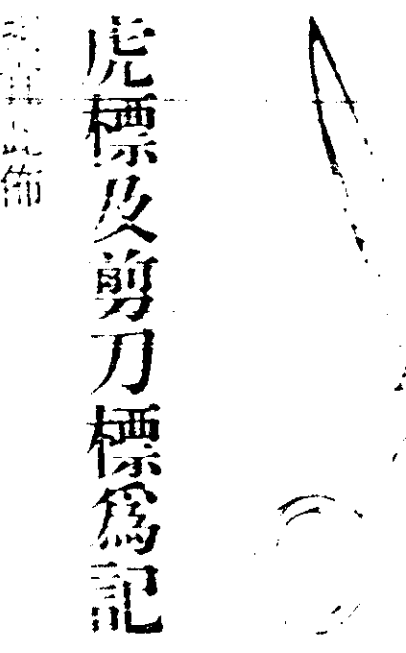 虎標及剪刀標爲記
此佈